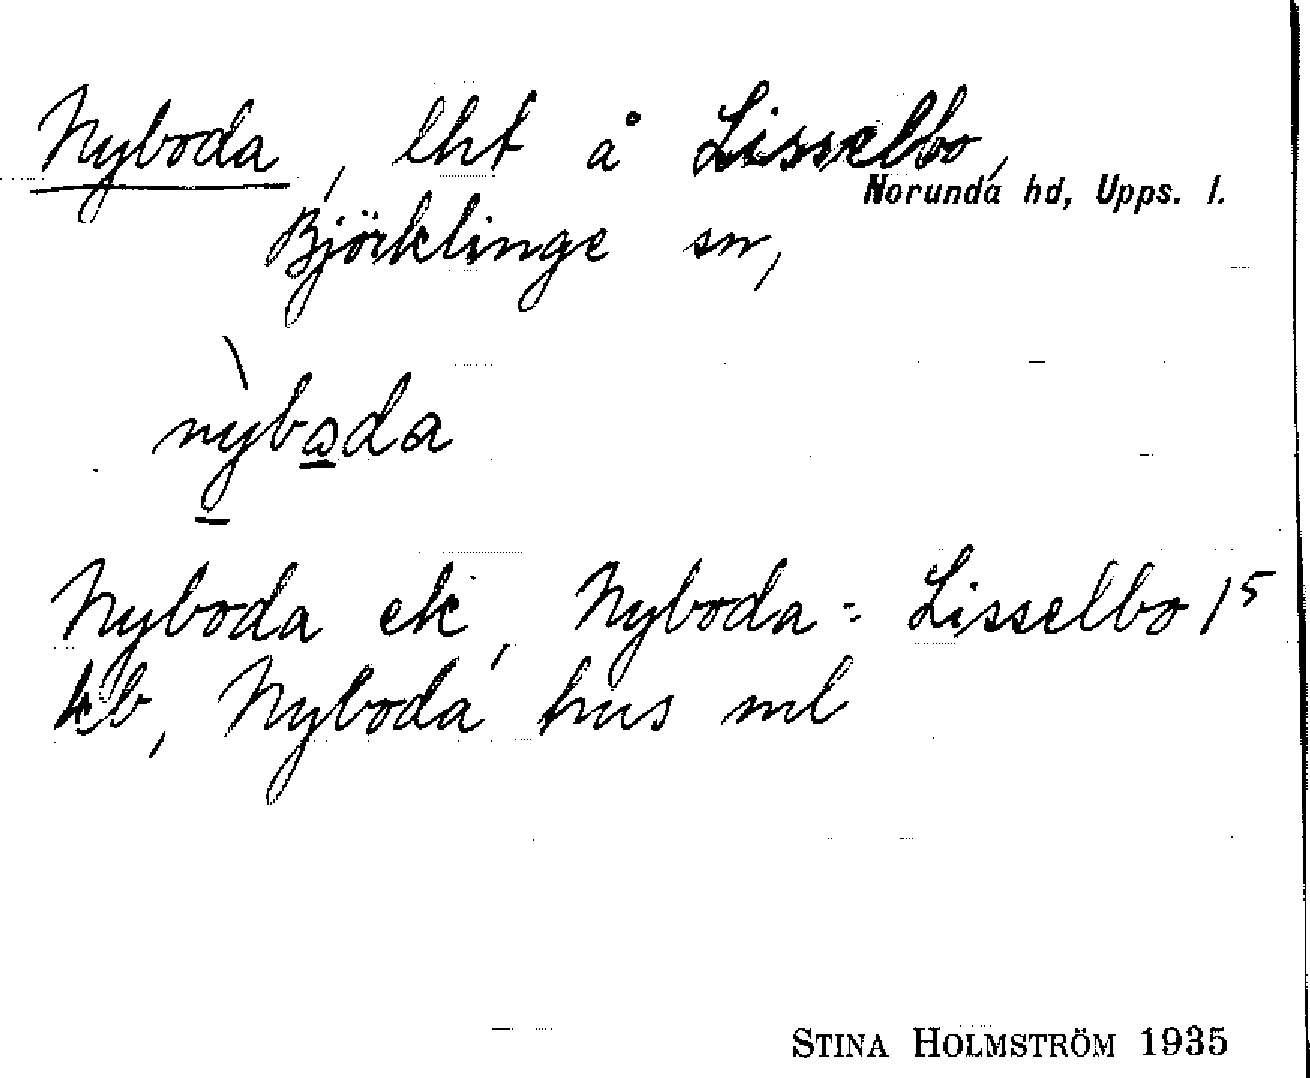 Nyboda, lht å Lisselbo,
Norunda hd, Upps. l.
Björklinge sn,
nỳbada
Nyboda ek, Nyboda = Lisselbo 1⁵
kb, Nyboda hus ml
STINA HOLMSTRÖM 1935